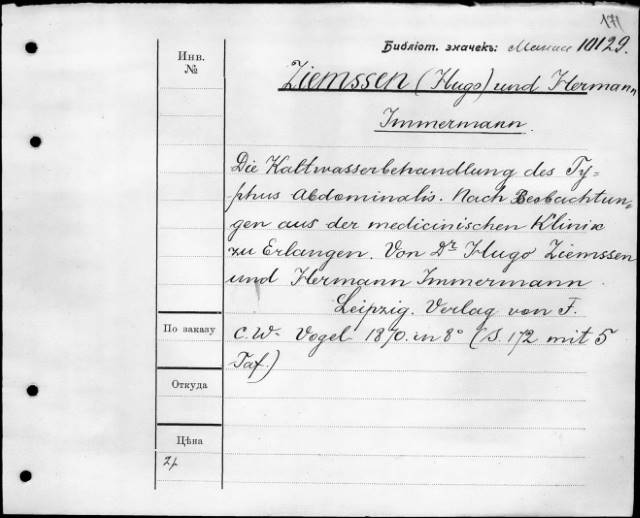 171
Библіот. значекъ: 10129.
Инв.
№
Ziemssen (Hugo) und Hermann
Immermann.
Die Kaltwasserbehandlung des Ty=
phus Abdominalis. Nach Beobachtun=
gen aus der medicinischen Klinik
zu Erlangen. Von Dr Hugo Ziemssen
und Hermann Immermann.
Leipzig. Verlag von F.
По заказу
C. W. Vogel 1870. in 8° (S. 172 mit 5
Taf.)
Откуда
Цѣна
2р